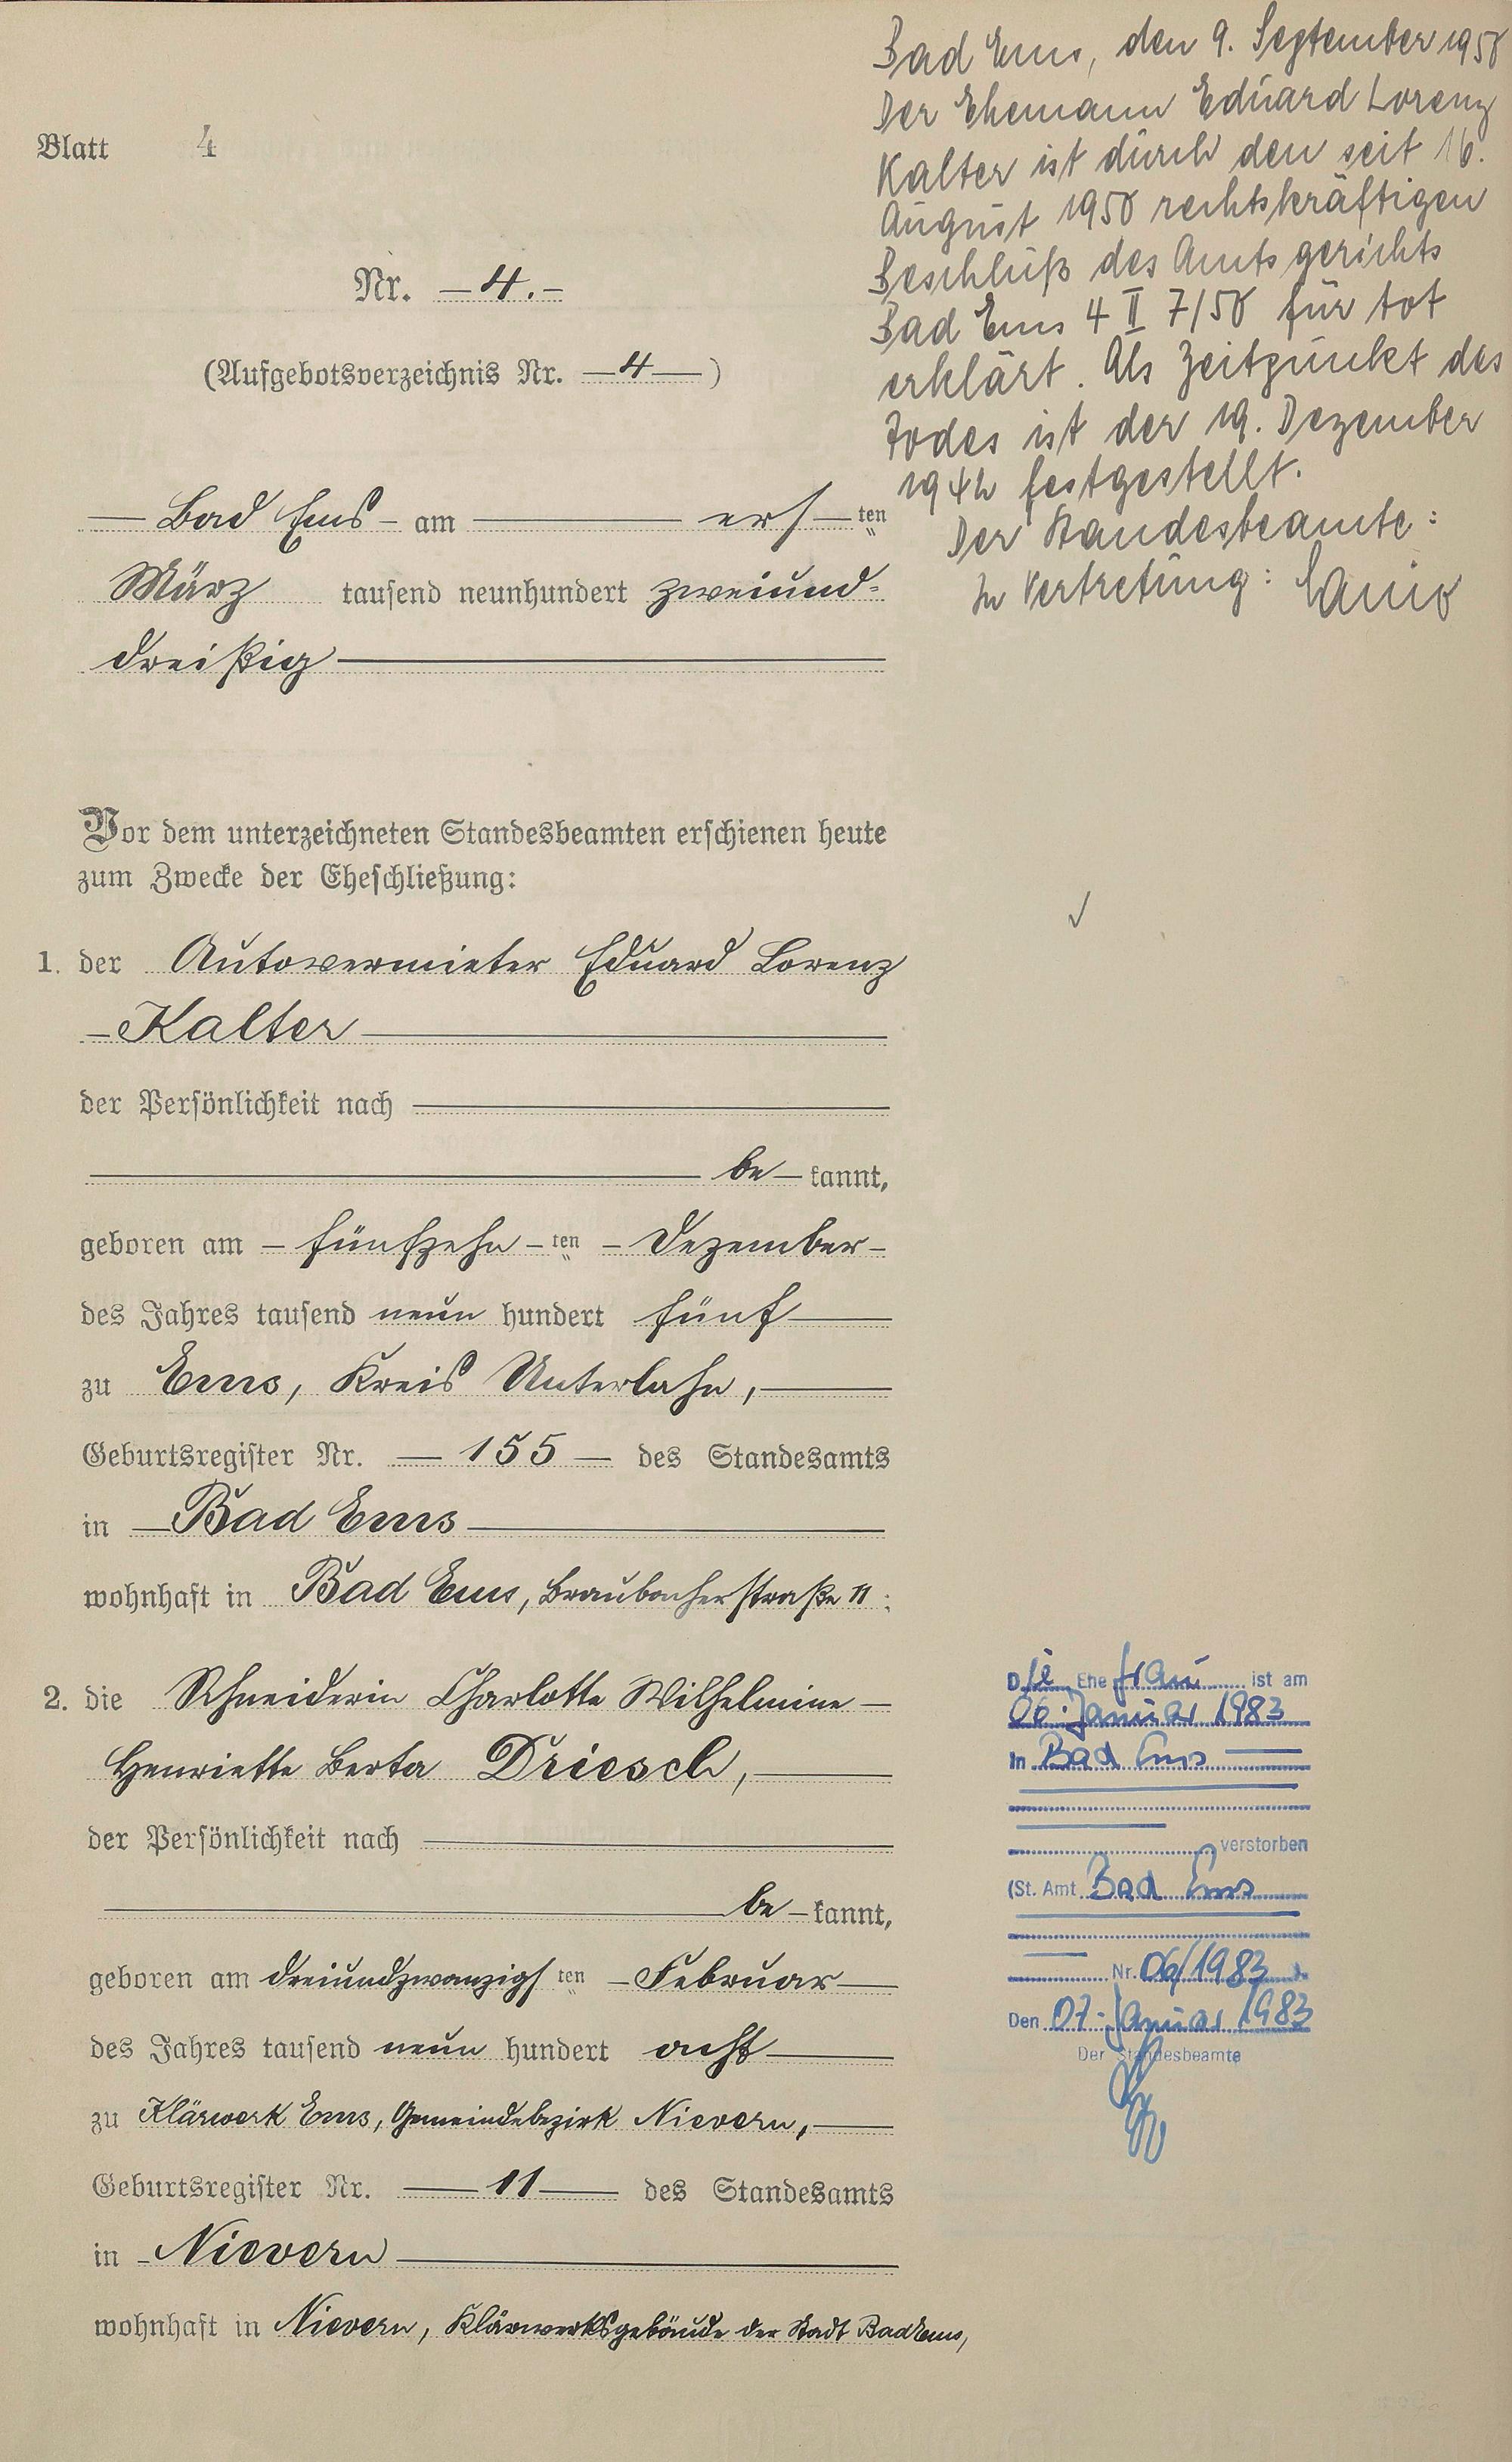 Blatt 4
Nr. 4.
(Aufgebotsverzeichnis Nr. 4)
Bad Ems am ersten
März tausend neunhundert zweiund-
dreißig
Vor dem unterzeichneten Standesbeamten erschienen heute
zum Zwecke der Eheschließung:
1. der Autovermieter Eduard Lorenz
Kalter
der Persönlichkeit nach
be kannt,
geboren am fünfzehn ten Dezember
des Jahres tausend neun hundert fünf
zu Ems, Kreis Unterlahn,
Geburtsregister Nr. 155 des Standesamts
in Bad Ems
wohnhaft in Bad Ems, Braubacherstraße 11;
2. die Schneiderin Charlotte Wilhelmine
Henriette Berta Driesch,
der Persönlichkeit nach
be kannt,
geboren am dreiundzwanzigsten Februar
des Jahres tausend neun hundert acht
zu Klärwerk Ems, Gemeindebezirk Nievern,
Geburtsregister Nr. 11 des Standesamts
in Nievern
wohnhaft in Nievern, Klärwerksgebäude der Stadt Bad Ems,
Bad Ems, den 9. September 1950
Der Ehemann Eduard Lorenz
Kalter ist durch den seit 16.
August 1950 rechtskräftigen
Beschluß des Amtsgerichts
Bad Ems 4 II 7/50 für tot
erklärt. Als Zeitpunkt des
Todes ist der 19. Dezember
1942 festgestellt.
Der Standesbeamte:
In Vertretung:
Die Ehefrau ist am
06. Januar 1983
in Bad Ems
verstorben
(St. Amt Bad Ems
Nr. 06/1983)
Den 07. Januar 1983
Der Standesbeamte